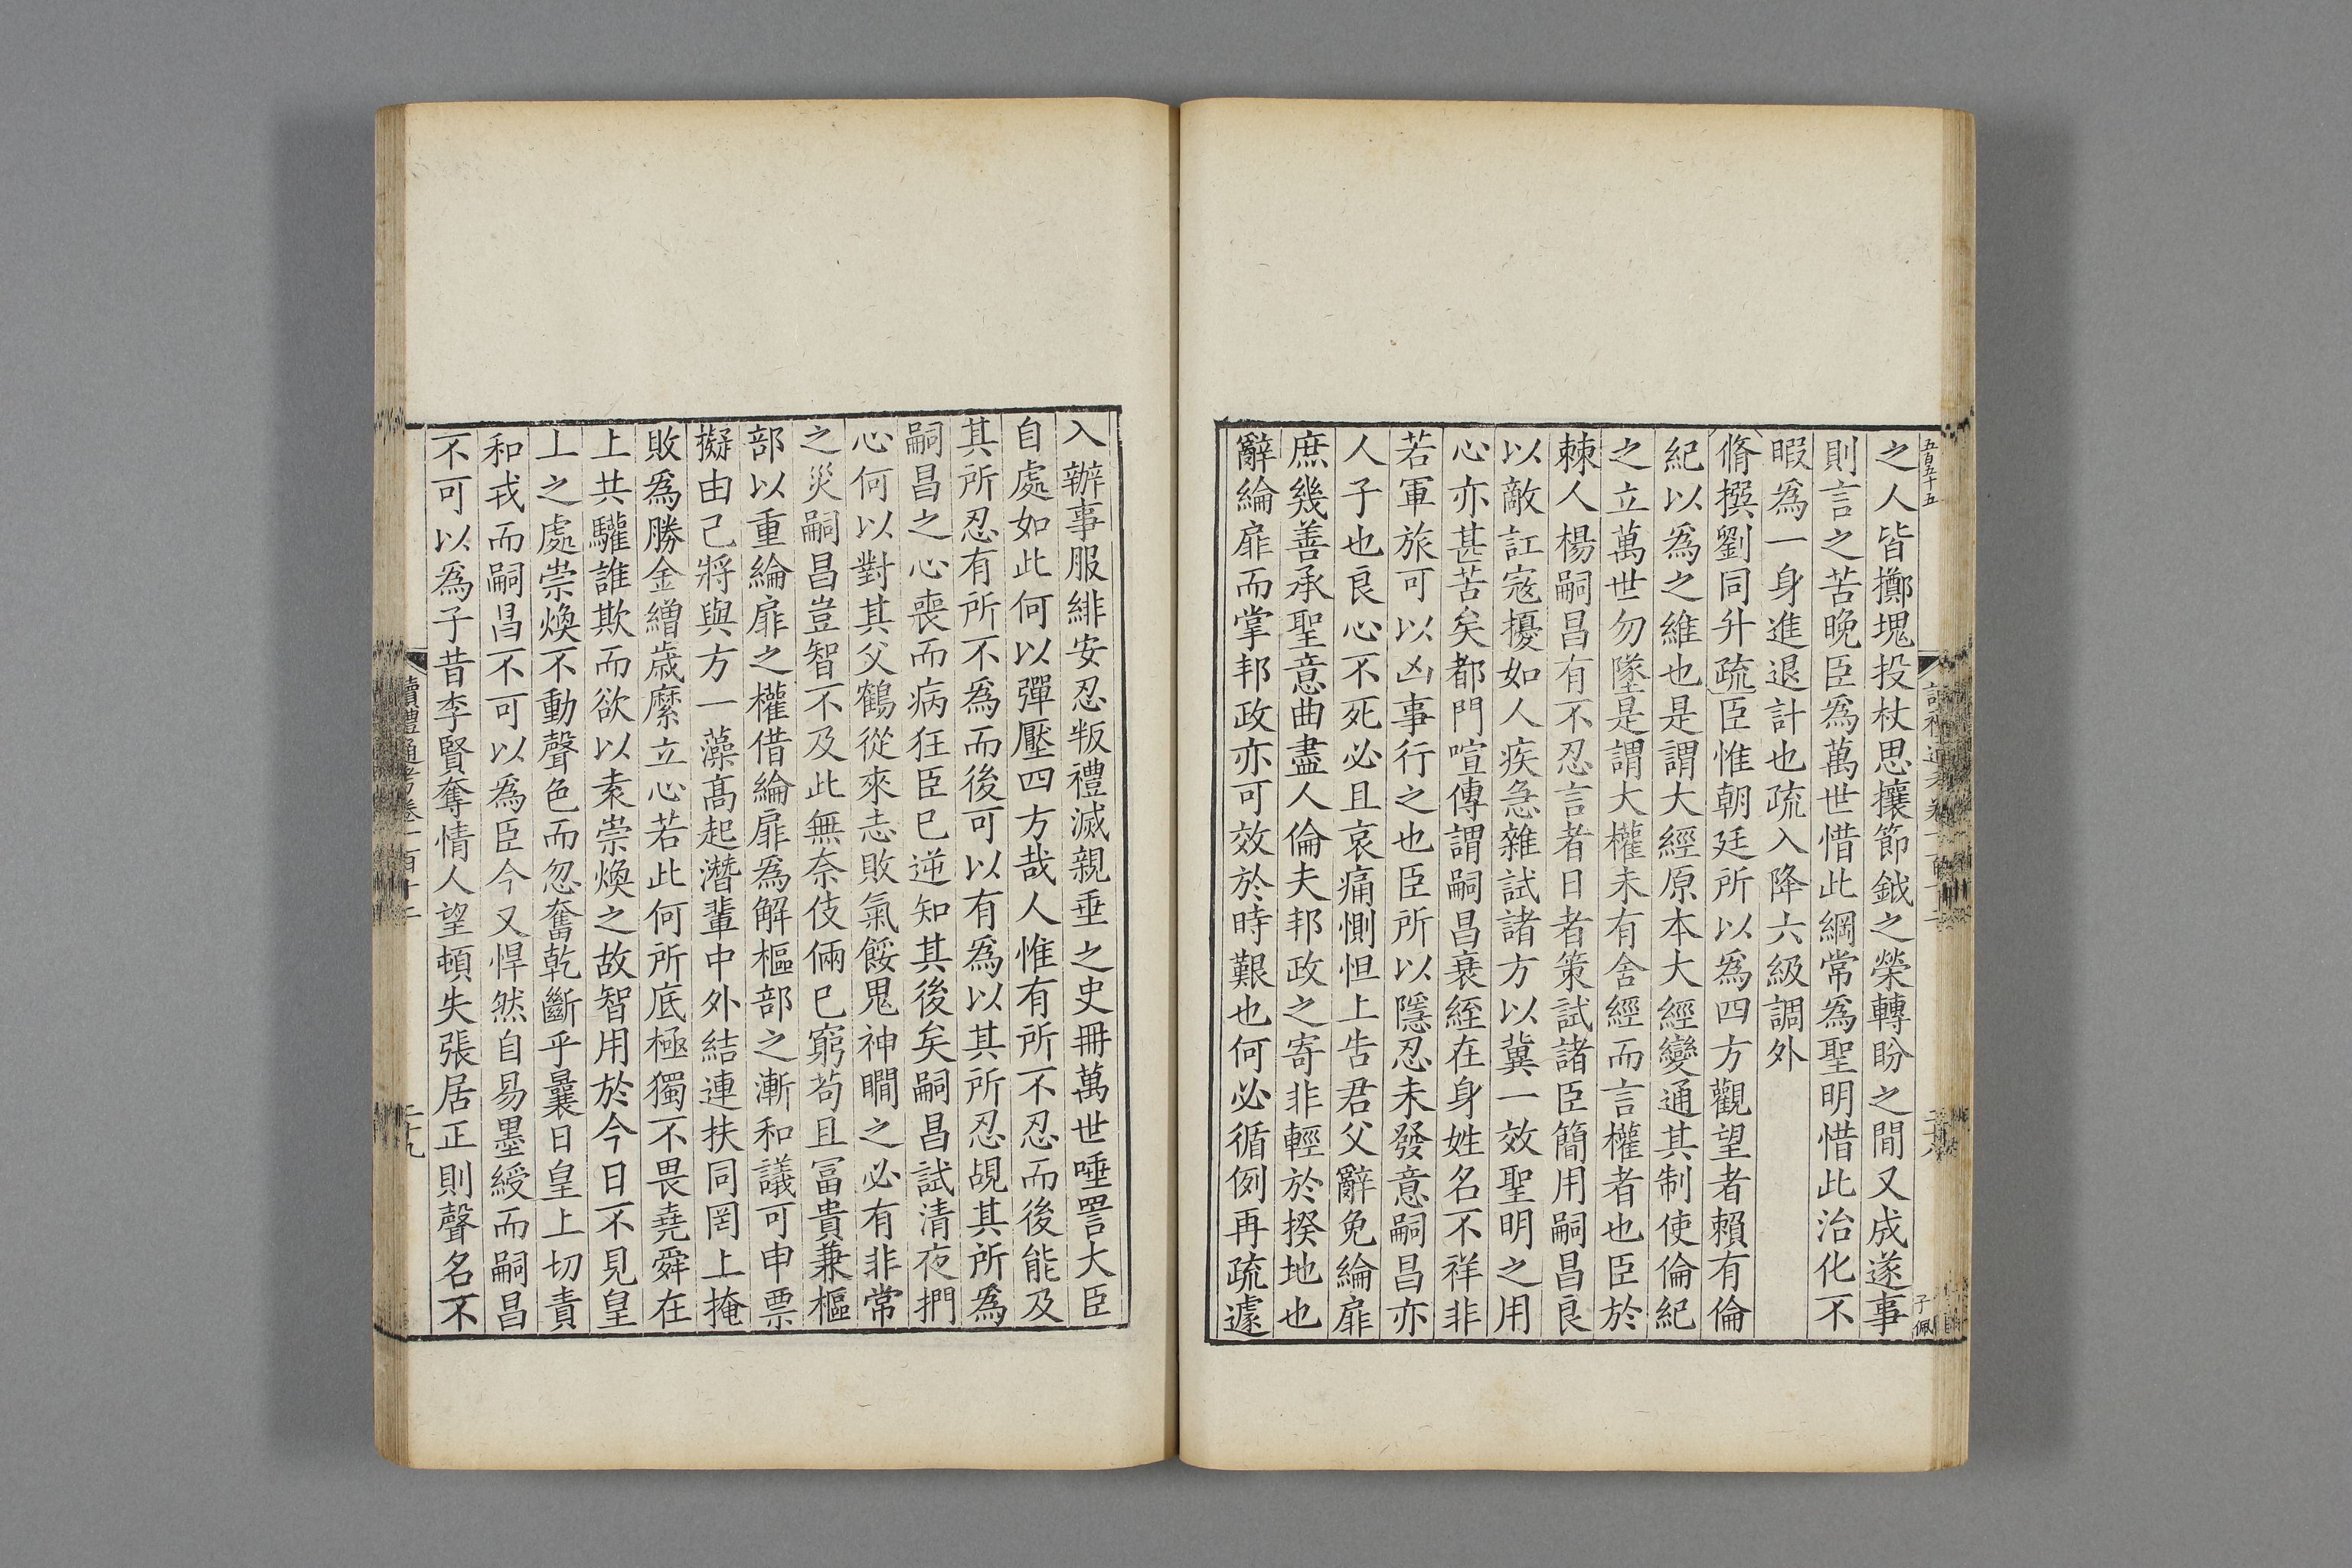 五百五十五
之人皆擲塊投杖思攘節鉞之榮轉盼之間又成遂事
則言之苦晚臣爲萬世惜此綱常爲聖明惜此治化不
暇爲一身進退計也疏入降六級調外
脩撰劉同升疏臣惟朝廷所以爲四方觀望者賴有倫
紀以爲之維也是謂大經原本大經變通其制使倫紀
之立萬世勿墜是謂大權未有舍經而言權者也臣於
棘人楊嗣昌有不忍言者日者策試諸臣簡用嗣昌良
以敵訌寇擾如人疾急雜試諸方以冀一效聖明之用
心亦甚苦矣都門喧傳謂嗣昌衰絰在身姓名不祥非
若軍旅可以凶事行之也臣所以隱忍未發意嗣昌亦
人子也良心不死必且哀痛惻怛上告君父辭免綸扉
庶幾善承聖意曲盡人倫夫邦政之寄非輕於揆地也
辭綸扉而掌邦政亦可效於時艱也何必循例再疏遽
子佩
入辦事服緋安忍叛禮滅親垂之史冊萬世唾詈大臣
自處如此何以彈壓四方哉人惟有所不忍而後能及
其所忍有所不爲而後可以有爲以其所忍覘其所爲
嗣昌之心喪而病狂臣已逆知其後矣嗣昌試清夜捫
心何以對其父鶴從來志敗氣餒鬼神瞯之必有非常
之災嗣昌豈智不及此無奈伎倆已窮苟且富貴兼樞
部以重綸扉之權借綸扉爲解樞部之漸和議可申票
擬由己將與方一藻高起潛輩中外結連扶同罔上掩
敗爲勝金繒歲縻立心若此何所底極獨不畏堯舜在
上共驩誰欺而欲以袁崇煥之故智用於今日不見皇
上之處崇煥不動聲色而忽奮乾斷乎曩日皇上切責
和戎而嗣昌不可以爲臣今又悍然自易墨綬而嗣昌
不可以爲子昔李賢奪情人望頓失張居正則聲名不
讀禮通考卷一百十二
二十九